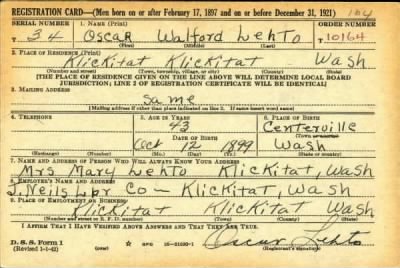 REGISTRATION CARD—(Men born on or after February 17, 1897 and on or before December 31, 1921)
SERIAL NUMBER 1. NAME (Print) ORDER NUMBER
T 34 Oscar Walford Lehto T 10164
(First) (Middle) (Last)
2. PLACE OF RESIDENCE (Print)
Klickitat Klickitat Wash
(Number and street) (Town, township, village, or city) (County) (State)
[THE PLACE OF RESIDENCE GIVEN ON THE LINE ABOVE WILL DETERMINE LOCAL BOARD
JURISDICTION; LINE 2 OF REGISTRATION CERTIFICATE WILL BE IDENTICAL]
3. MAILING ADDRESS
same
[Mailing address if other than place indicated on line 2. If same insert word same]
4. TELEPHONE 5. AGE IN YEARS 6. PLACE OF BIRTH
43 Centerville
DATE OF BIRTH (Town or county)
Oct 12 1899 Wash
(Exchange) (Number) (Mo.) (Day) (Yr.) (State or country)
7. NAME AND ADDRESS OF PERSON WHO WILL ALWAYS KNOW YOUR ADDRESS
Mrs Mary Lehto Klickitat, Wash
8. EMPLOYER'S NAME AND ADDRESS
J. Neils Lbr Co – Klickitat, Wash
9. PLACE OF EMPLOYMENT OR BUSINESS
Klickitat Klickitat Wash
(Number and street or R. F. D. number) (Town) (County) (State)
I AFFIRM THAT I HAVE VERIFIED ABOVE ANSWERS AND THAT THEY ARE TRUE.
D. S. S. Form 1
(Revised 1-1-42) Oscar Lehto
(Registrant's signature)